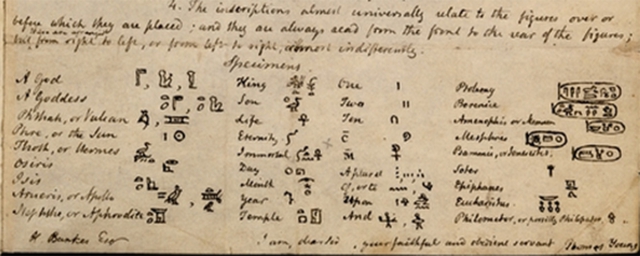 4. The inscriptions almost universally relate to the figures over or
before which they are placed; and they are always read from the front to the rear of the figures;
but from right to left, or from left to right, almost indifferently.
Specimens
A God King One Ptolemy
A Goddess Son Two Berenice
Phthah, or Vulcan Life Ten Amenophis or Memnon
Phre, or the Sun Eternity C̄ Mesphres
Thoth, or Hermes Immortal M̄
Osiris Day A plural Soter
Isis Month Of, or to Epiphanes
Arueris, or Apollo Year Upon Euchaistus
Nephthe, or Aphrodite Temple And Philometor, or possibly Philopator
W Bankes Esq I am, dear Sir, your faithful and obedient servant Thomas Young